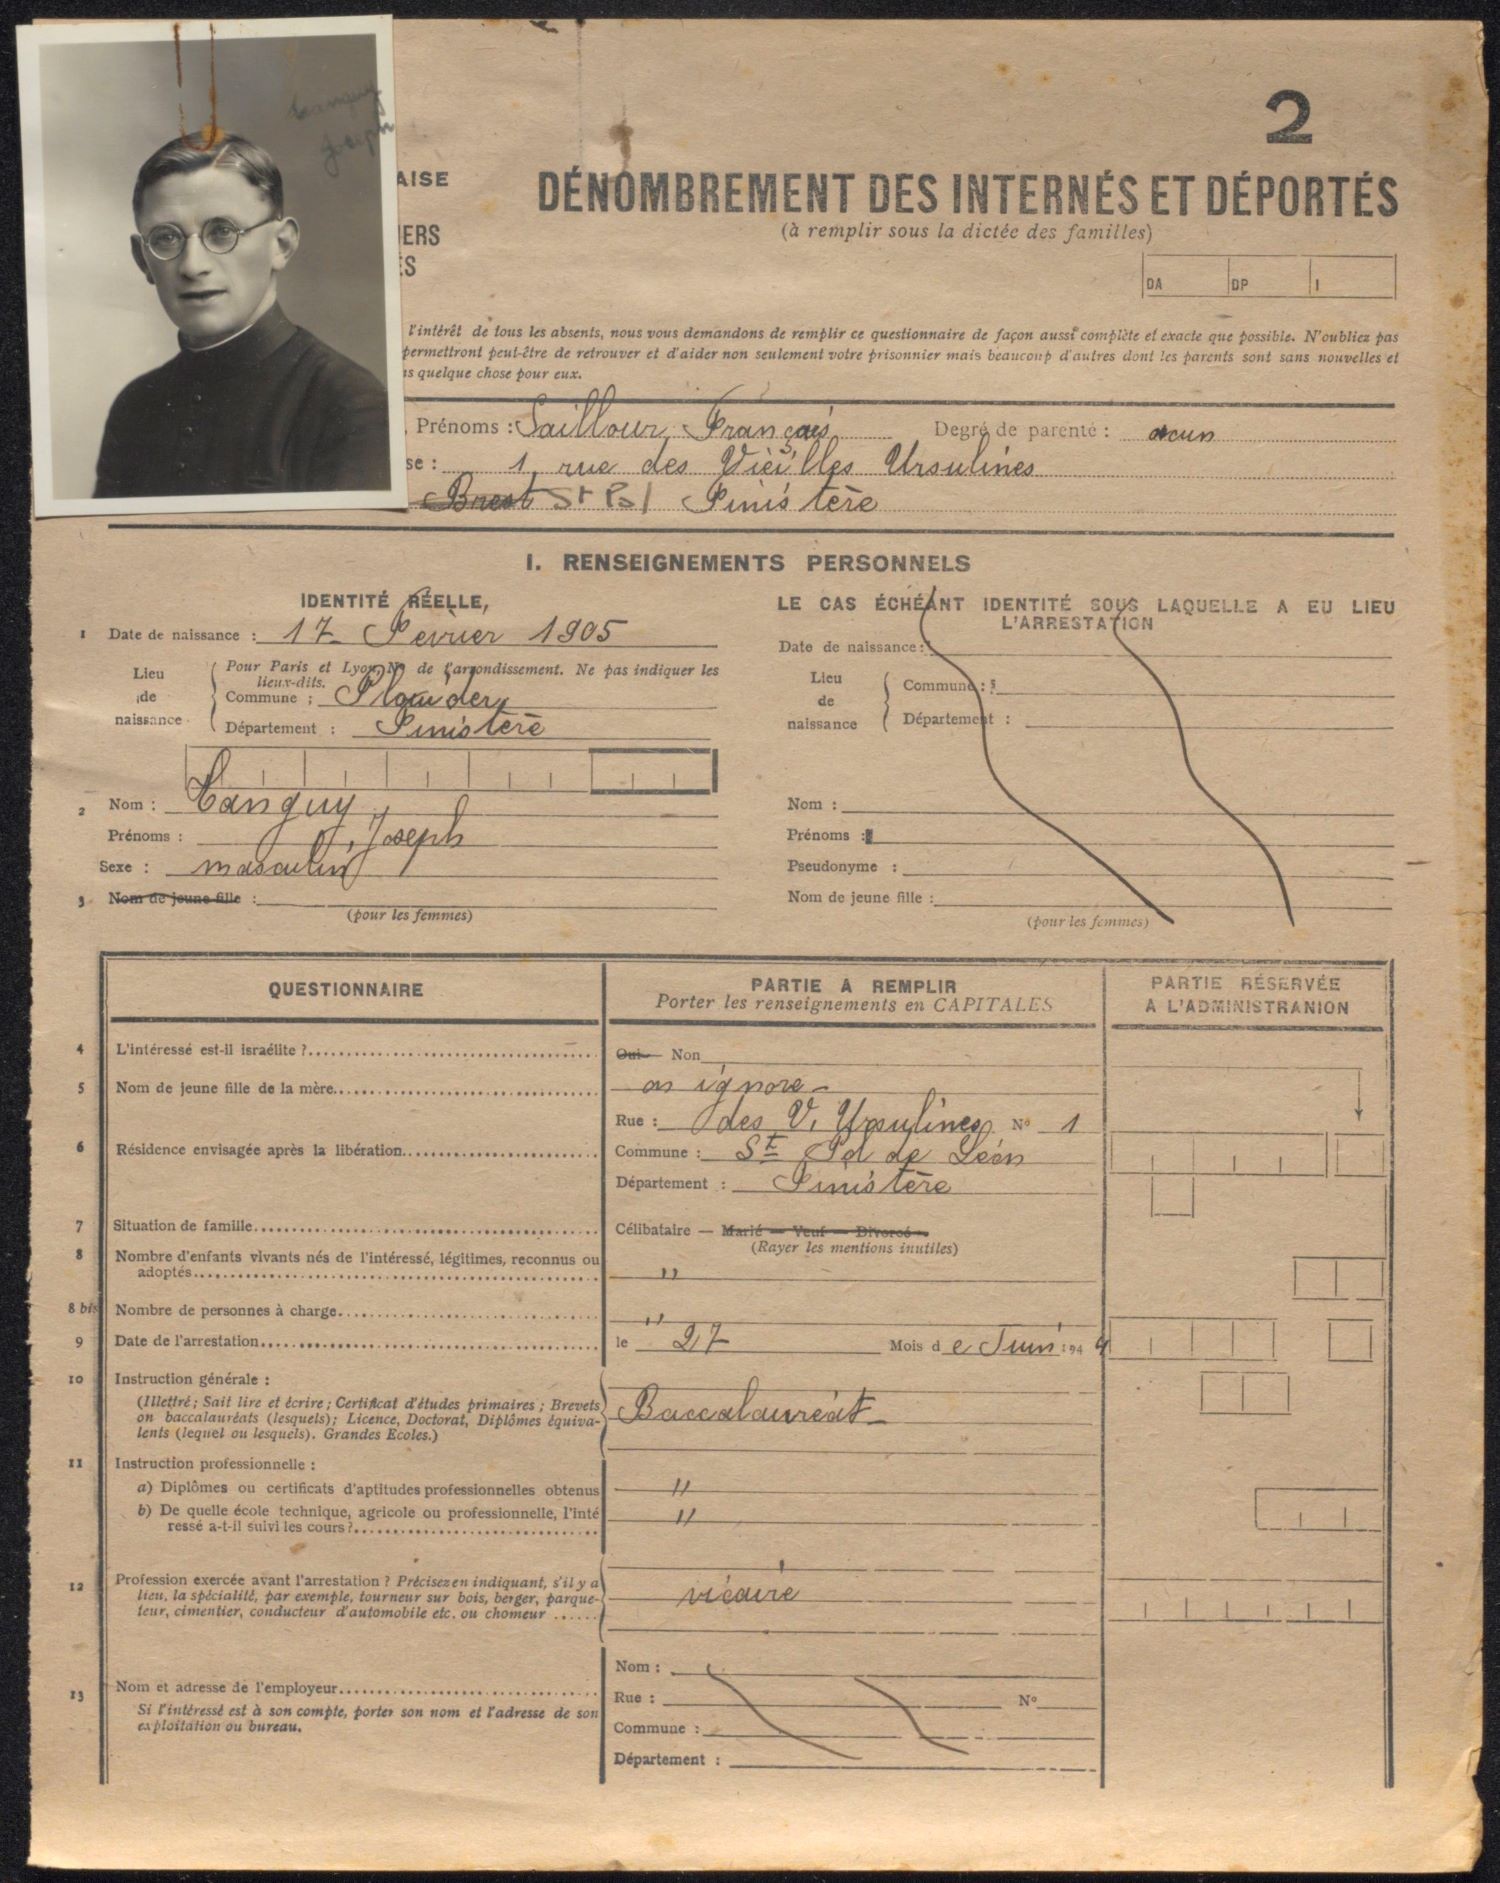 2
Tanguy
Joseph
AISE
IERS
ÉS
DÉNOMBREMENT DES INTERNÉS ET DÉPORTÉS
(à remplir sous la dictée des familles)
DA DP I
l'intérêt de tous les absents, nous vous demandons de remplir ce questionnaire de façon aussi complète et exacte que possible. N'oubliez pas
permettront peut-être de retrouver et d'aider non seulement votre prisonnier mais beaucoup d'autres dont les parents sont sans nouvelles et
quelque chose pour eux.
Prénoms : Saillour François Degré de parenté : aucun
se : 1, rue des Vieilles Ursulines
Brest St Pol Finistère
I. RENSEIGNEMENTS PERSONNELS
IDENTITÉ RÉELLE,
1 Date de naissance : 17 Février 1905
Lieu de naissance
Pour Paris et Lyon No de l'arrondissement. Ne pas indiquer les
lieux-dits.
Commune : Plouider
Département : Finistère
2 Nom : Tanguy
Prénoms : Joseph
Sexe : masculin
3 Nom de jeune fille :
(pour les femmes)
LE CAS ÉCHÉANT IDENTITÉ SOUS LAQUELLE A EU LIEU
L'ARRESTATION
Date de naissance :
Lieu de naissance
Commune :
Département :
Nom :
Prénoms :
Pseudonyme :
Nom de jeune fille :
(pour les femmes)
QUESTIONNAIRE
PARTIE A REMPLIR
Porter les renseignements en CAPITALES
PARTIE RÉSERVÉE
A L'ADMINISTRANION
4 L'intéressé est-il israélite ? Oui Non
5 Nom de jeune fille de la mère on ignore
Rue : des V. Ursulines No 1
6 Résidence envisagée après la libération Commune : St Pol de Léon
Département : Finistère
7 Situation de famille Célibataire — Marié — Veuf — Divorcé
(Rayer les mentions inutiles)
8 Nombre d'enfants vivants nés de l'intéressé, légitimes, reconnus ou
adoptés "
8 bis Nombre de personnes à charge "
9 Date de l'arrestation le 27 Mois de Juin 1944
10 Instruction générale :
(Illettré ; Sait lire et écrire ; Certificat d'études primaires ; Brevets
on baccalauréats (lesquels) ; Licence, Doctorat, Diplômes équiva-
lents (lequel ou lesquels). Grandes Ecoles.)
Baccalauréat
11 Instruction professionnelle :
a) Diplômes ou certificats d'aptitudes professionnelles obtenus "
b) De quelle école technique, agricole ou professionnelle, l'inté
ressé a-t-il suivi les cours ? "
12 Profession exercée avant l'arrestation ? Précisez en indiquant, s'il y a
lieu, la spécialité, par exemple, tourneur sur bois, berger, parque-
teur, cimentier, conducteur d'automobile etc. ou chomeur
vicaire
13 Nom et adresse de l'employeur
Si l'intéressé est à son compte, porter son nom et l'adresse de son
exploitation ou bureau.
Nom :
Rue : No
Commune :
Département :